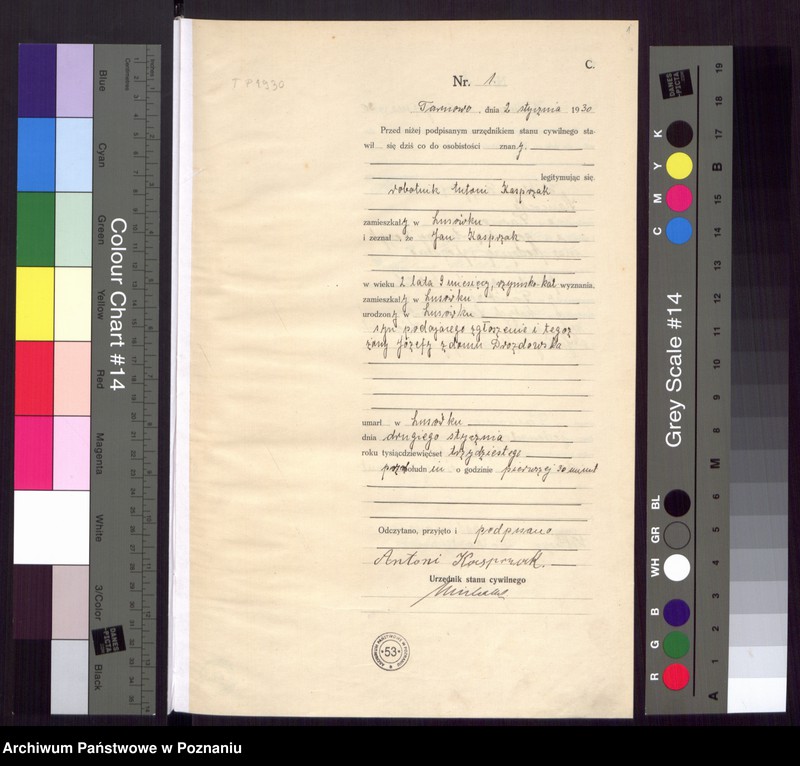 C.
T P 1930
Nr. 1.
Tarnowo, dnia 2 stycznia 1930
Przed niżej podpisanym urzędnikiem stanu cywilnego sta-
wił się dziś co do osobistości znany.
legitymując się
robotnik Antoni Kasprzak
zamieszkały w Lusówku
i zeznał, że Jan Kasprzak
w wieku 2 lata 9 miesięcy, rzymsko-kat wyznania,
zamieszkały w Lusówku
urodzony w Lusówku
syn podającego zgłoszenie i tegoż
żony Józefy z domu Drozdowska
umarł w Lusówku
dnia drugiego stycznia
roku tysiącdziewięćset trzydziestego
przed połudn iu o godzinie pierwszej 30 minut
Odczytano, przyjęto i podpisano
Antoni Kasprzak.
Urzędnik stanu cywilnego
ARCHIWUM PAŃSTWOWE W POZNANIU
53
Colour Chart #14
Blue
Cyan
Green
Yellow
Red
Magenta
White
3/Color
Black
Centimetres
Inches
DANES
PICTA
.COM
Grey Scale #14
R G B WH GR BL C M Y K
A 1 2 3 4 5 6 M 8 9 10 11 12 13 14 15 B 17 18 19
DANES
PICTA
.COM
Archiwum Państwowe w Poznaniu